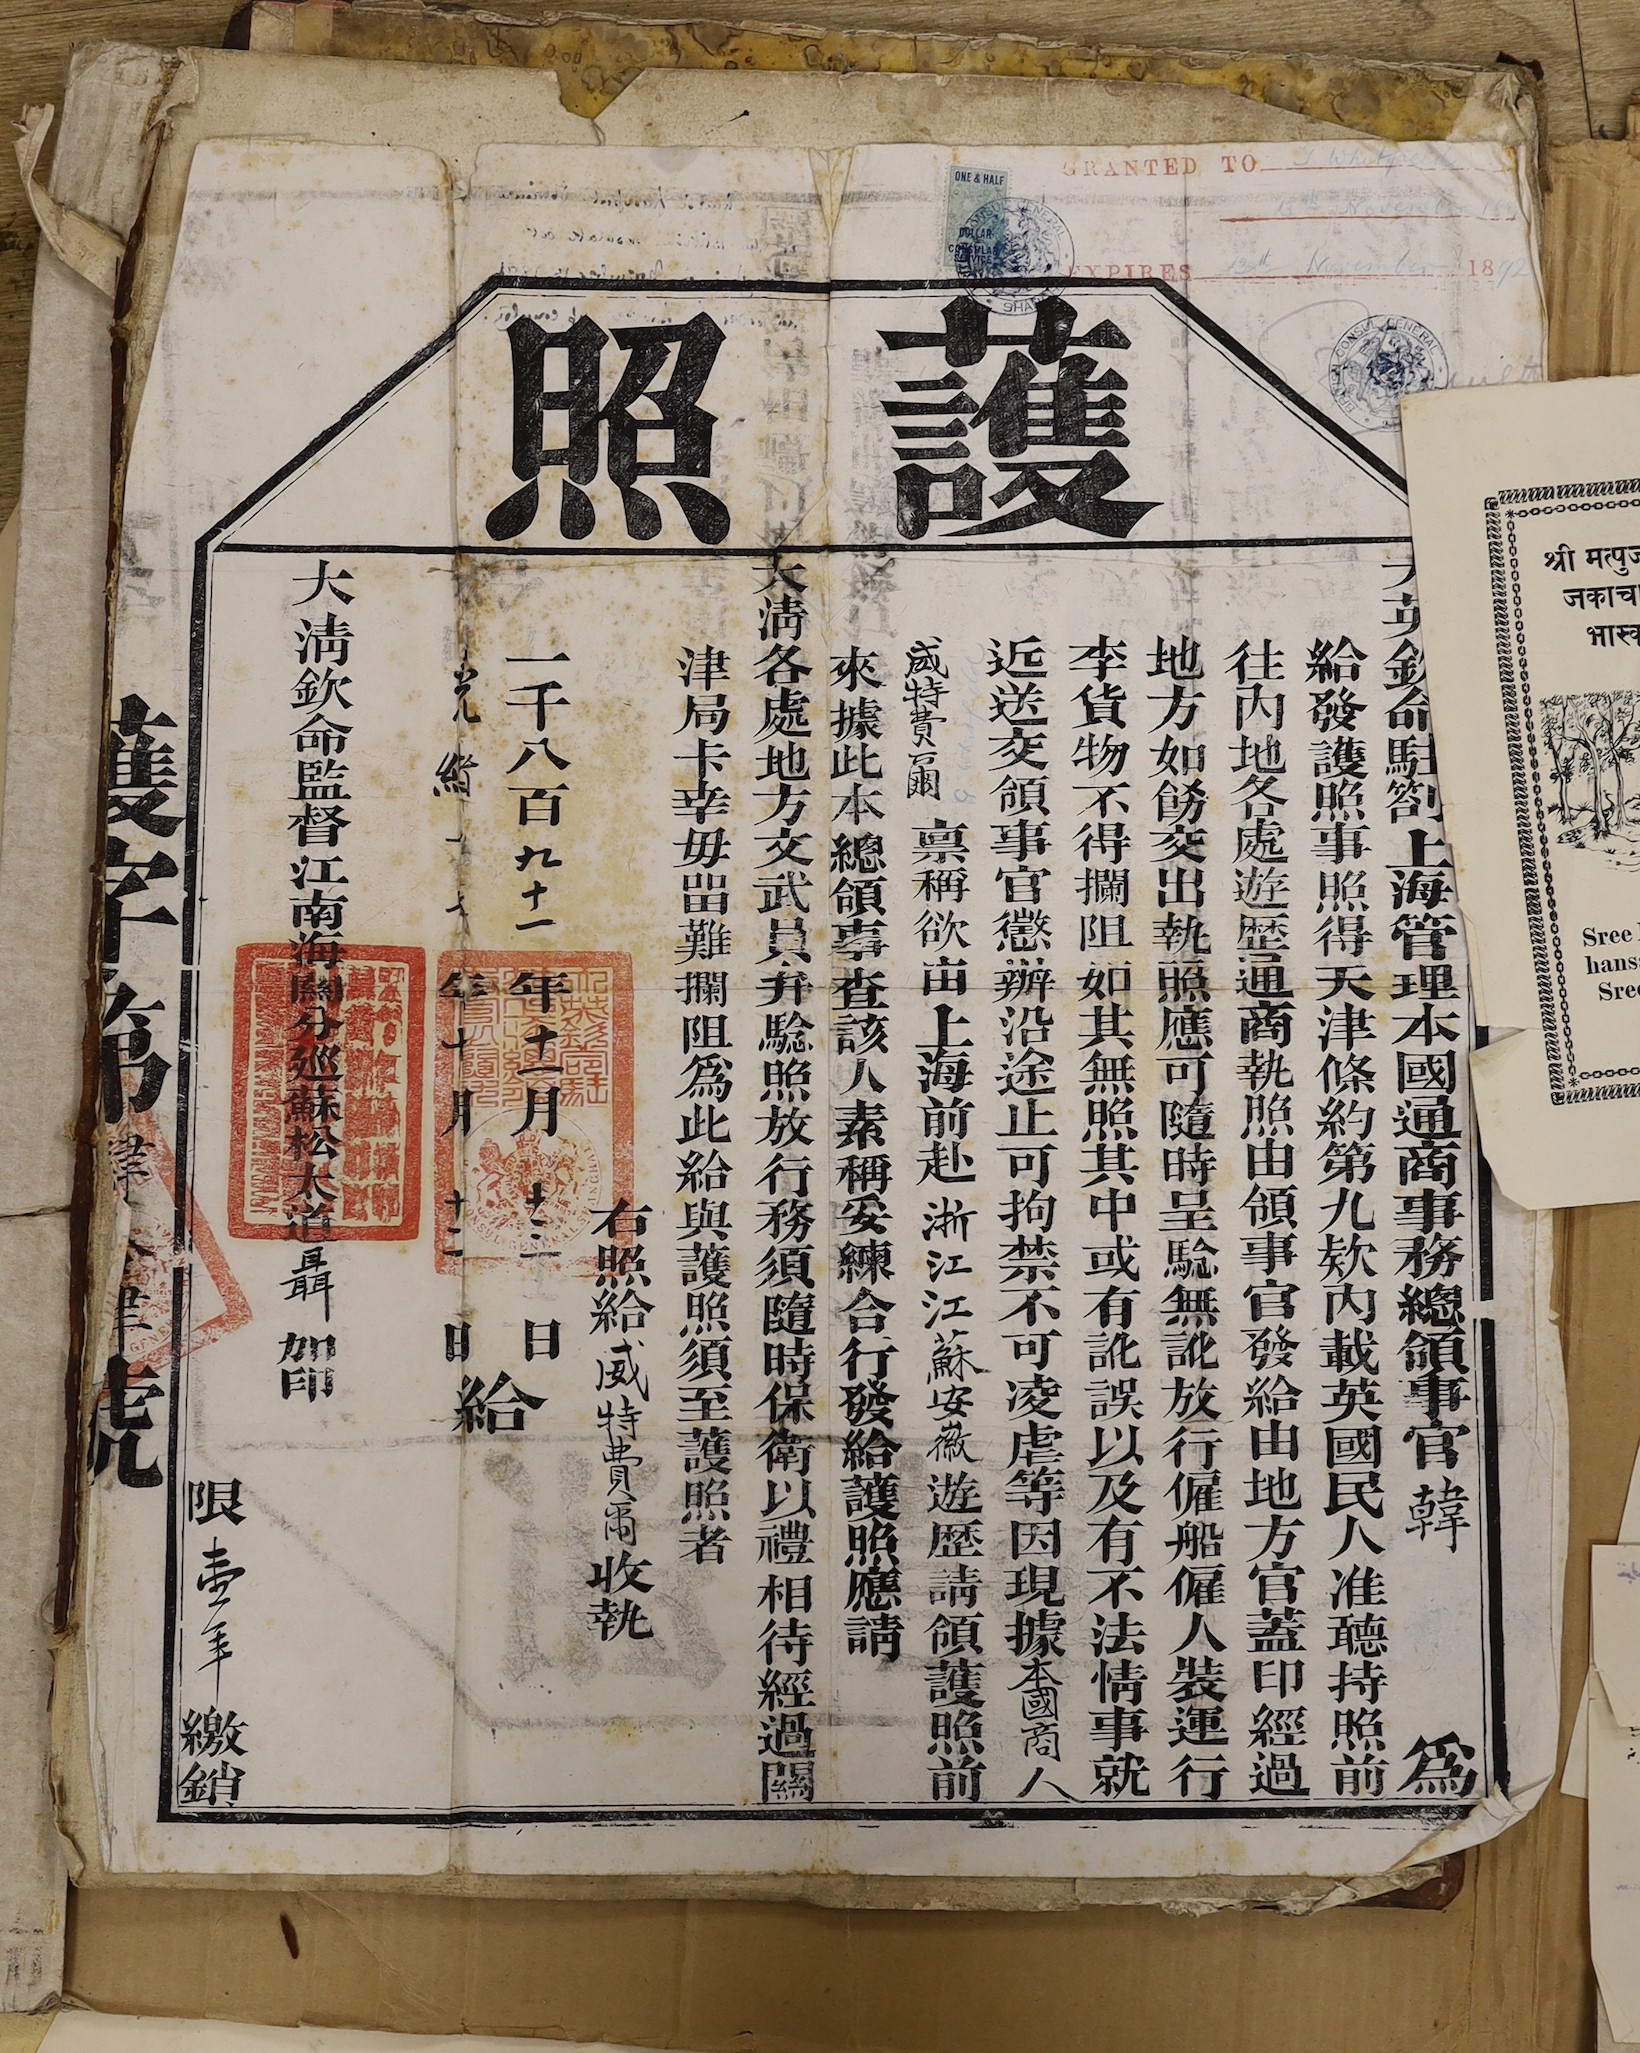 GRANTED TO
November
EXPIRES 12th November 1892
ONE & HALF
DOLLAR
CONSULAR
SERVICE
BRITISH CONSUL GENERAL
護照
大英欽命駐劄上海管理本國通商事務總領事官韓 為
給發護照事照得天津條約第九欵內載英國民人准聽持照前
往內地各處遊歷通商執照由領事官發給由地方官蓋印經過
地方如飭交出執照應可隨時呈騐無訛放行僱船僱人裝運行
李貨物不得攔阻如其無照其中或有訛誤以及有不法情事就
近送交領事官懲辦沿途止可拘禁不可凌虐等因現據本國商人
威特費爾 禀稱欲由上海前赴浙江江蘇安徽遊歷請領護照前
來據此本總領事查該人素稱妥練合行發給護照應請
大淸各處地方文武員弁騐照放行務須隨時保衛以禮相待經過關
津局卡幸毋畱難攔阻為此給與護照須至護照者
右照給威特費爾收執
一千八百九十一年十一月十三日
光緒十七年十月十二日
給
大淸欽命監督江南海關分巡蘇松太道聶 加印
限壹年繳銷
護字第
號
श्री मत्पुज
जकाचा
भास्क
Sree
hans
Sree